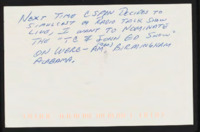 NEXT TIME C-SPAN DECIDES TO
SIMULCAST A RADIO TALK SHOW
LIVE, I WANT TO NOMINATE
THE "TC & JOHN ED SHOW"
ON WERC-AM, BIRMINGHAM
ALABAMA.